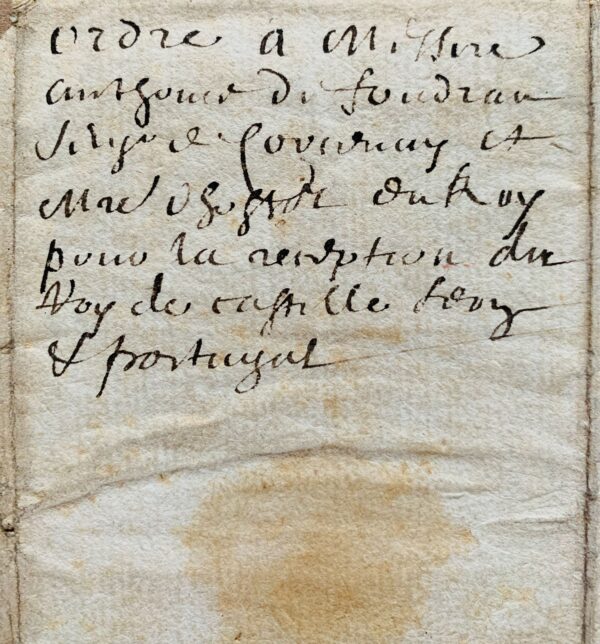 ordre a Messire
anthoine de foudras
Seigr de Courcenay et
Mre d'hostel du Roy
pour la reception du
Roy de castille leon
& portugal